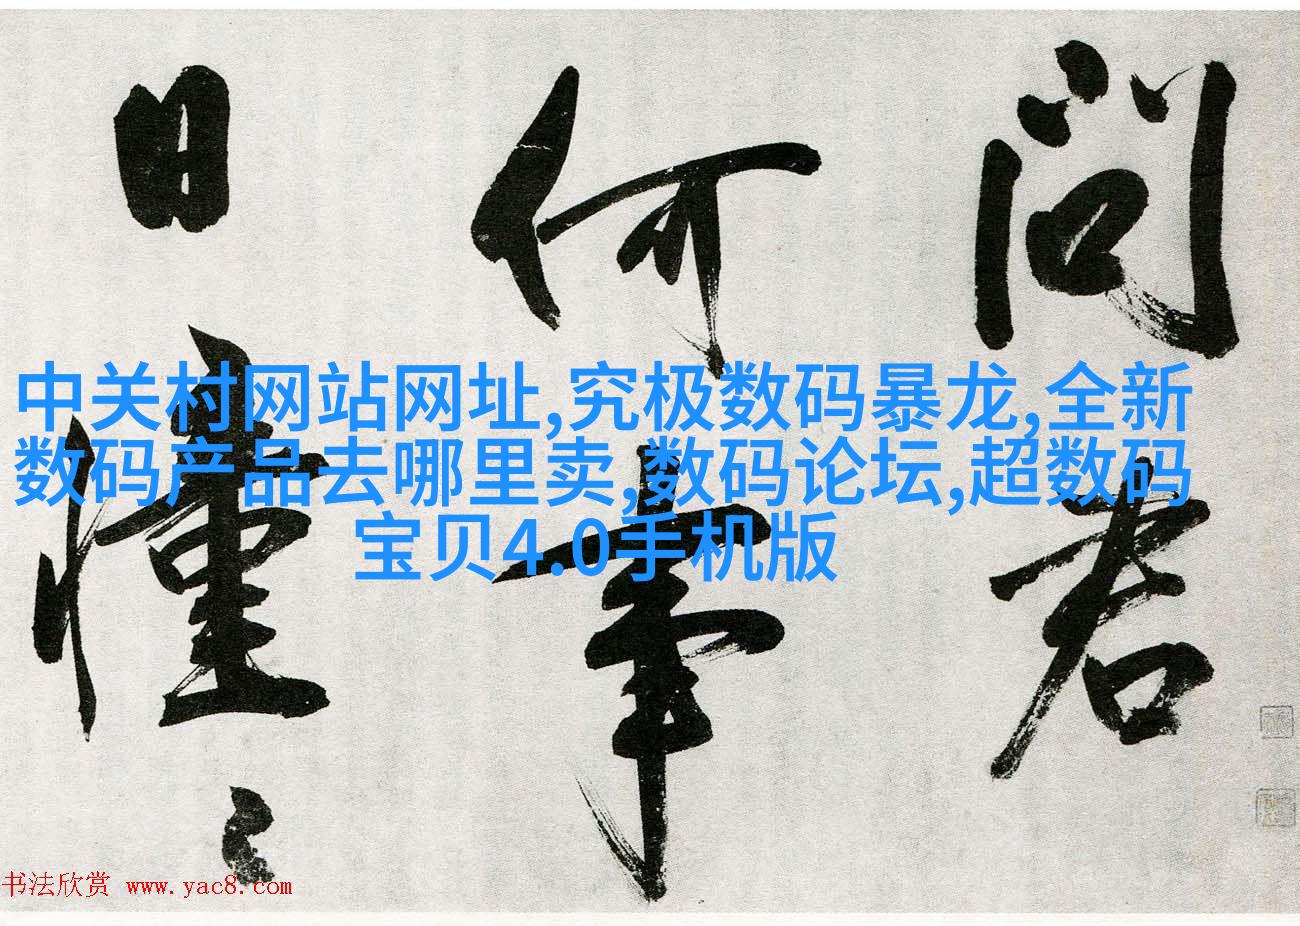 问君
何事
日憧々
中关村网站网址,究极数码暴龙,全新
数码产品去哪里卖,数码论坛,超数码
宝贝4.0手机版
书法欣赏 www.yac8.com